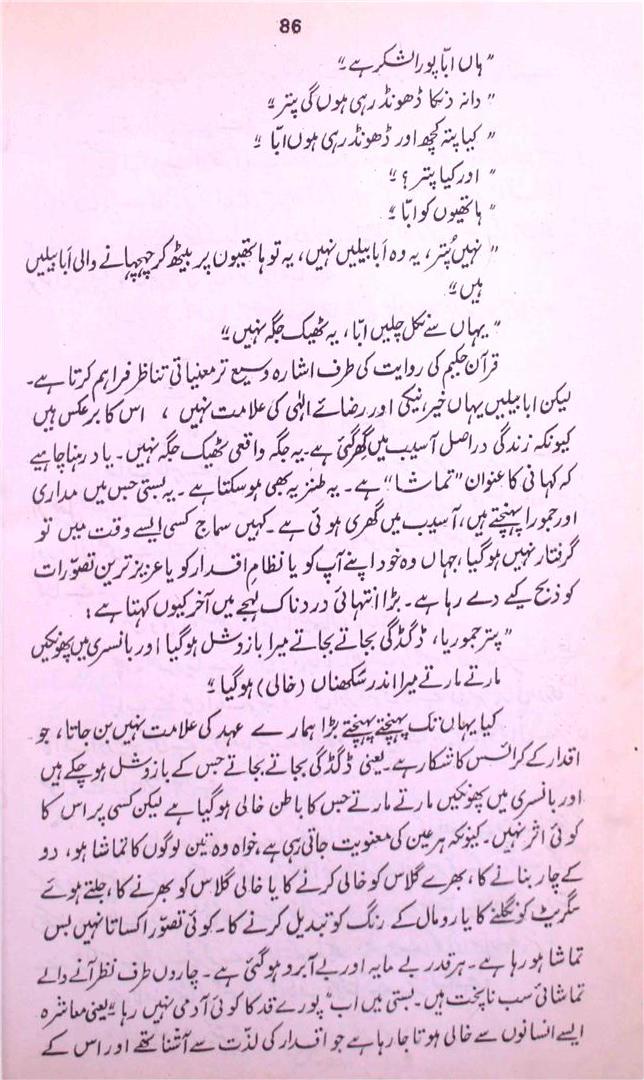 86
"ہاں ابّا پورا لشکر ہے۔"
"دانہ دنکا ڈھونڈ رہی ہوں گی پتر۔"
"کیا پتہ کچھ اور ڈھونڈ رہی ہوں ابّا۔"
"اور کیا پتر؟"
"ہاتھیوں کو ابّا۔"
"نہیں پُتر، یہ وہ اَبابیلیں نہیں، یہ تو ہاتھیوں پر بیٹھ کر چہچہانے والی اَبابیلیں
ہیں۔"
"یہاں سے نکل چلیں ابّا، یہ ٹھیک جگہ نہیں۔"
قرآن حکیم کی روایت کی طرف اشارہ وسیع تر معنیاتی تناظر فراہم کرتا ہے۔
لیکن ابابیلیں یہاں خیر، نیکی اور رضائے الٰہی کی علامت نہیں، اس کا برعکس ہیں
کیونکہ زندگی دراصل آسیب میں گِھر گئی ہے۔ یہ جگہ واقعی ٹھیک جگہ نہیں۔ یاد رہنا چاہیے
کہ کہانی کا عنوان "تماشا" ہے۔ یہ طنزیہ بھی ہو سکتا ہے۔ یہ بستی جس میں مداری
اور جمورا پہنچتے ہیں، آسیب میں گھری ہوئی ہے۔ کہیں سماج کسی ایسے وقت میں تو
گرفتار نہیں ہو گیا، جہاں وہ خود اپنے آپ کو یا نظامِ اقدار کو یا عزیز ترین تصوّرات
کو ذبح کیے دے رہا ہے۔ بڑا انتہائی دردناک لہجے میں آخر کیوں کہتا ہے:
"پتر جموریا، ڈگڈگی بجاتے بجاتے میرا بازو شل ہو گیا اور بانسری میں پھونکیں
مارتے مارتے میرا اندر سکھناں (خالی) ہو گیا۔"
کیا یہاں تک پہنچتے پہنچتے بڑا ہمارے عہد کی علامت نہیں بن جاتا، جو
اقدار کے کرائسس کا شکار ہے۔ یعنی ڈگڈگی بجاتے بجاتے جس کے بازو شل ہو چکے ہیں
اور بانسری میں پھونکیں مارتے مارتے جس کا باطن خالی ہو گیا ہے لیکن کسی پر اس کا
کوئی اثر نہیں۔ کیونکہ ہر عین کی معنویت جاتی رہی ہے، خواہ وہ تین لوگوں کا تماشا ہو، دو
کے چار بنانے کا، بھرے گلاس کو خالی کرنے کا یا خالی گلاس کو بھرنے کا، جلتے ہوئے
سگریٹ کو نگلنے کا یا رومال کے رنگ کو تبدیل کرنے کا۔ کوئی تصوّر اکساتا نہیں بس
تماشا ہو رہا ہے۔ ہر قدر بے مایہ اور بے آبرو ہو گئی ہے۔ چاروں طرف نظر آنے والے
تماشائی سب ناپخت ہیں۔ بستی میں اب "پورے قد کا کوئی آدمی نہیں رہا" یعنی معاشرہ
ایسے انسانوں سے خالی ہوتا جا رہا ہے جو اقدار کی لذّت سے آشنا تھے اور اس کے